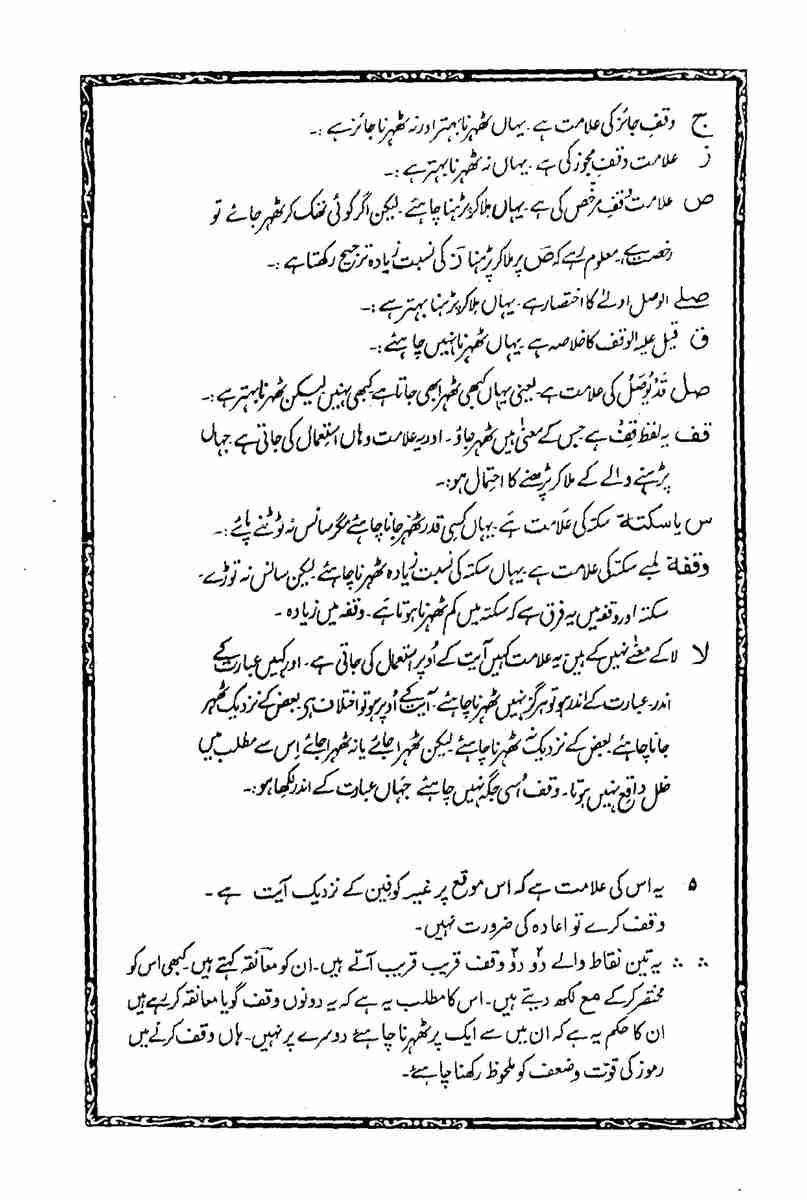 ج وقفِ جائز کی علامت ہے۔ یہاں ٹھہرنا بہتر اور نہ ٹھہرنا جائز ہے :۔
ز علامت وقفِ مجوز کی ہے۔ یہاں نہ ٹھہرنا بہتر ہے :۔
ص علامت وقفِ مرخص کی ہے۔ یہاں ملا کر پڑھنا چاہئے۔ لیکن اگر کوئی تھک کر ٹھہر جائے تو
رخصت ہے۔ معلوم رہے کہ صَ پر ملا کر پڑھنا زَ کی نسبت زیادہ ترجیح رکھتا ہے :۔
صلے الوصل اولےٰ کا اختصار ہے۔ یہاں ملا کر پڑھنا بہتر ہے :۔
ق قیل علیہ الوقف کا خلاصہ ہے۔ یہاں ٹھہرنا نہیں چاہئے :۔
صل قَدْ یُوصَلُ کی علامت ہے۔ یعنی یہاں کبھی ٹھہرا بھی جاتا ہے کبھی نہیں لیکن ٹھہرنا بہتر ہے :۔
قف یہ لفظ قِفْ ہے جس کے معنیٰ ہیں ٹھہر جاؤ۔ اور یہ علامت وہاں استعمال کی جاتی ہے جہاں
پڑھنے والے کے ملا کر پڑھنے کا احتمال ہو :۔
س یا سکتة سکتہ کی علامت ہے۔ یہاں کسی قدر ٹھہر جانا چاہئے مگر سانس نہ ٹوٹنے پائے :۔
وقفة لمبے سکتہ کی علامت ہے۔ یہاں سکتہ کی نسبت زیادہ ٹھہرنا چاہئے۔ لیکن سانس نہ توڑے۔
سکتہ اور وقفہ میں یہ فرق ہے کہ سکتہ میں کم ٹھہرنا ہوتا ہے۔ وقفہ میں زیادہ ۔
لا لا کے معنے نہیں کے ہیں یہ علامت کہیں آیت کے اُوپر استعمال کی جاتی ہے۔ اور کہیں عبارت کے
اندر۔ عبارت کے اندر ہو تو ہرگز نہیں ٹھہرنا چاہئے۔ آیت کے اُوپر ہو تو اختلاف ہے بعض کے نزدیک ٹھہر
جانا چاہئے بعض کے نزدیک نہ ٹھہرنا چاہئے لیکن ٹھہرا جائے یا نہ ٹھہرا جائے اِس سے مطلب میں
خلل واقع نہیں ہوتا۔ وقف اُسی جگہ نہیں چاہئے جہاں عبارت کے اندر لکھا ہو :۔
۵ یہ اس کی علامت ہے کہ اس موقع پر غیر کوفیین کے نزدیک آیت ہے ۔
وقف کرے تو اعادہ کی ضرورت نہیں۔
∴ ∴ یہ تین نقاط والے دو دو وقف قریب قریب آتے ہیں۔ ان کو معانقہ کہتے ہیں۔ کبھی اس کو
مختصر کر کے مع لکھ دیتے ہیں۔ اس کا مطلب یہ ہے کہ یہ دونوں وقف گویا معانقہ کر رہے ہیں
ان کا حکم یہ ہے کہ ان میں سے ایک پر ٹھہرنا چاہئے دوسرے پر نہیں۔ ہاں وقف کرنے میں
رموز کی قوّت وضعف کو ملحوظ رکھنا چاہئے۔